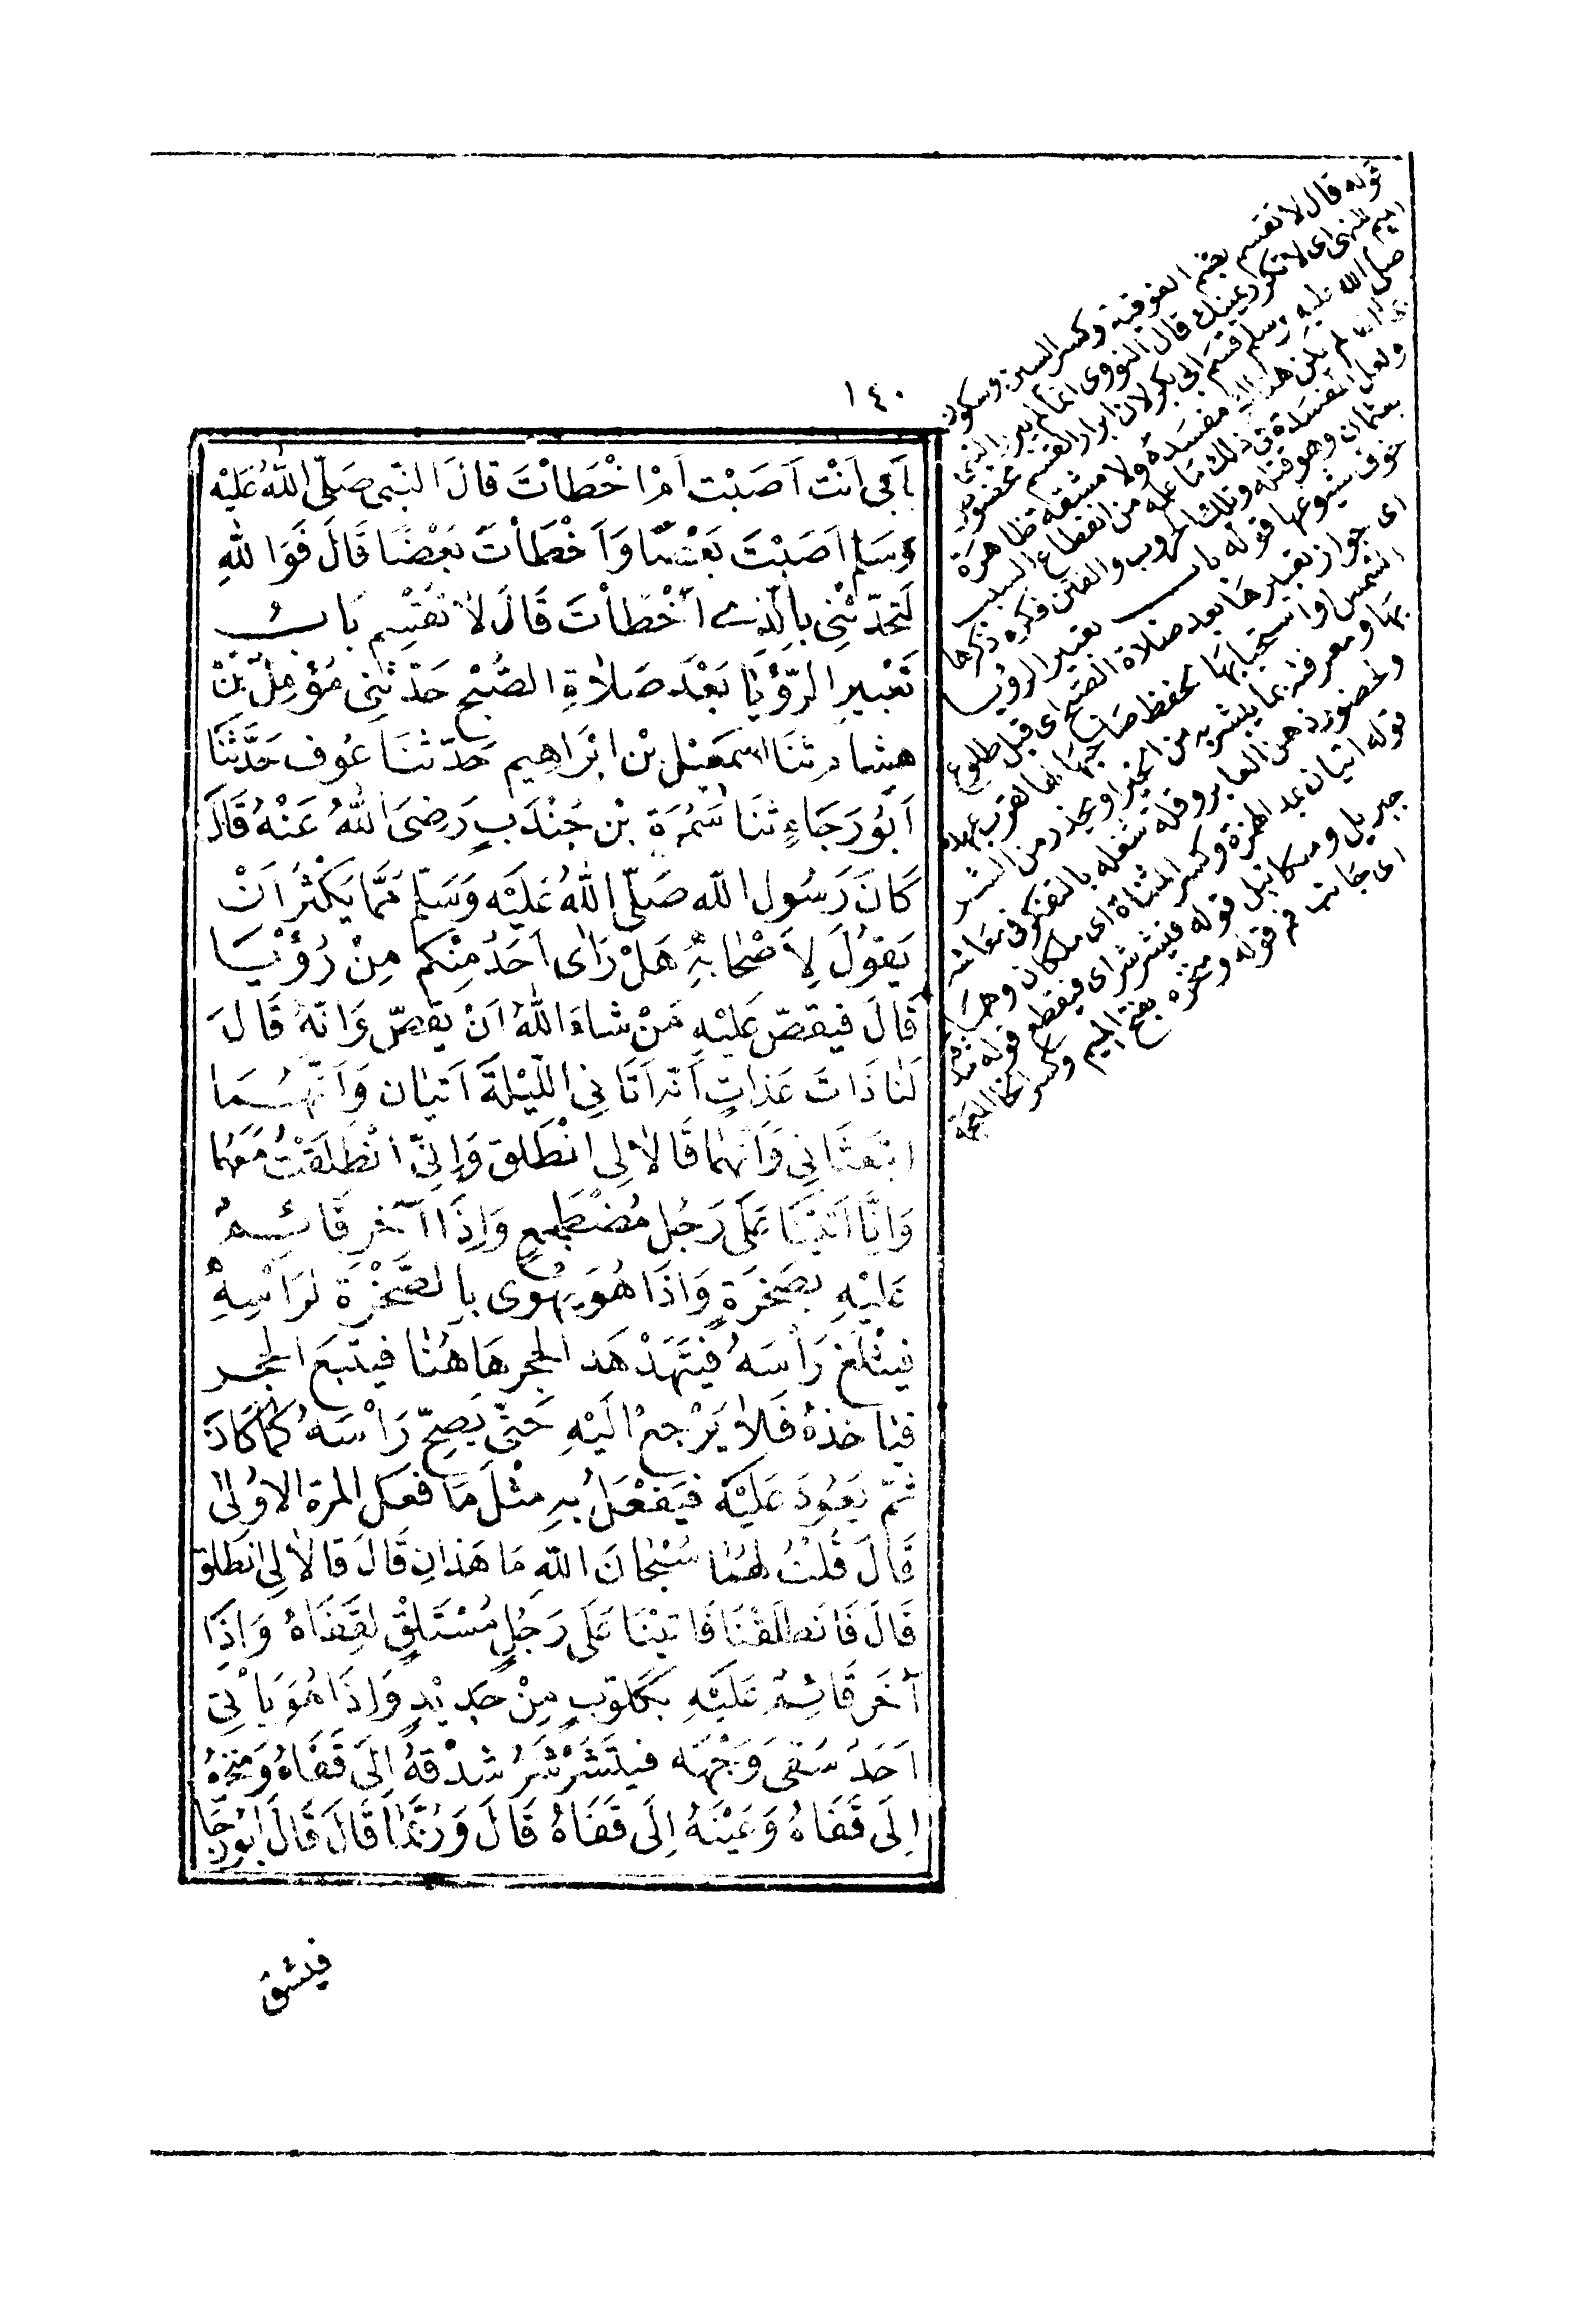 ١٤٠
بابى انت اَصَبْت اَمْ اخْطَاْتَ قالَ النّبِى صَلّى اللهُ عَلَيْه
وَسَلم اَصَبْتَ بَعْضًا وَاَخْطَاْتَ بَعْضًا قَالَ فَوَاللهِ
لَتحَدّثْنِى بِالّذِى اَخْطَاْتَ قَالَ لاَ تُقْسِم بَابُ
تَعْبِيرِ الرّؤْيَا بَعْدَ صَلاَةِ الصُّبْحِ حَدّثنِى مُؤمِلُ بْنُ
هشام ثنَا اسمَعِيْل بْن ابْرَاهِيم حَدّثنَا عَوف حَدَّثَنَا
اَبُورَجَاءٍ ثنَا سَمُرَةَ بْن جُنْدَبٍ رَضِىَ اللهُ عَنْهُ قَالَ
كَانَ رَسُول الله صَلّى اللهُ عَلَيْه وَسَلّم مَمَّا يَكْثُرُ اَنْ
يَقوُلَ لِاَصْحَابِهِ هَلْ رَاَى اَحَدُ مِنْكم مِنْ رُؤْيَا
قَالَ فيقصّ عَلَيْهِ مَنْ شاءَ اللهُ اَنْ يقصّ وَانّهُ قَالَ
لَنا ذَاتَ غَدَاتٍ اَنّه اَتَانِى اللّيْلَةَ اَتيَان وَاَنّهُمَا
ابْتعَثَانِى وَاَنّهمَا قَالاَ لِى انْطَلق وَاِنّى انْطَلَقْتُ مَعَهما
وَانَّا اَتَيْنَا عَلَى رَجُلٍ مُضْطَجِعٍ وَاِذَا اَخر قَائِمُ
عَليْهِ بِصَخرَةٍ وَاذَا هُوَ يَهْوى بِالصَّخْرَة لرَاْسِهِ
فيثلغ رَاْسَهُ فيتَهَدْهَد الحجر هَاهُنا فيتْبَع الحجر
فياخذهُ فَلاَ يَرْجعُ اليْهِ حَتّى يَصِحّ رَاْسَهُ كمَا كَانَ
ثمّ يَعُودَ عَلَيْهِ فيَفْعَلُ بِهِ مثْلَ مَا فعَل المرة الاوُلى
قَالَ قُلْتُ لهُمَا سُبْحَانَ اللهِ مَا هَذانِ قَالَ قالاَ لِى انطَلق
قَالَ فَانطَلَقْنَا فَاتَيْنَا عَلَى رَجُلٍ مُسْتَلْقٍ لِقَفَاهُ وَاذَا
آخَر قَائِمُ عَلَيْهِ بكَلوّبٍ مِنْ حَدِيْدٍ وَاِذَا هُوَ يَاْتِى
اَحَدُ شقى وَجْهَه فيتَشَرْشَرُ شدْقهُ اِلَى قَفَاهُ وَمنخرَهُ
اِلَى قَفَاهُ وَعَيْنَهُ اِلَى قَفَاهُ قَالَ وَرُبّمَا قَالَ قَالَ ابُورجَا
فيشق
قوله قال لا تقسم بضم الفوقية وكسر السين وسكون
الميم للنهى اى لا تكرر يمينك قال النووى انما لم يبر النبى
صلى الله عليه وسلم قسم ابى بكر لان ابرار القسم مخصوص
لم يكن هناك مفسدة ولا مشقة ظاهرة
ولعل المفسدة فى ذلك ما علمه من انقطاع السبب
بعثمان وهو قتله وتلك الحروب والفتن فكره ذكرها
خوف شيوعها قوله باب تعبير الرؤيا
اى جواز تعبيرها بعد صلاة الصبح اى قبل طلوع
الشمس او استحبابها لحفظ صاحبها لها لقرب عهده
بها ومعرفته بما يبشر به من الخير او يحذر من الشر
ولحضور ذهن العابر وقلة شغله بالتفكر فى معاشه
قوله اتيان بمد الهمزة وكسر المثناة اى ملكان وهما
جبريل وميكائيل قوله فيشرشر اى فيقطع قوله شدقه
اى جانب فم قوله ومنخره بفتح الميم وكسر الخا المعجمة